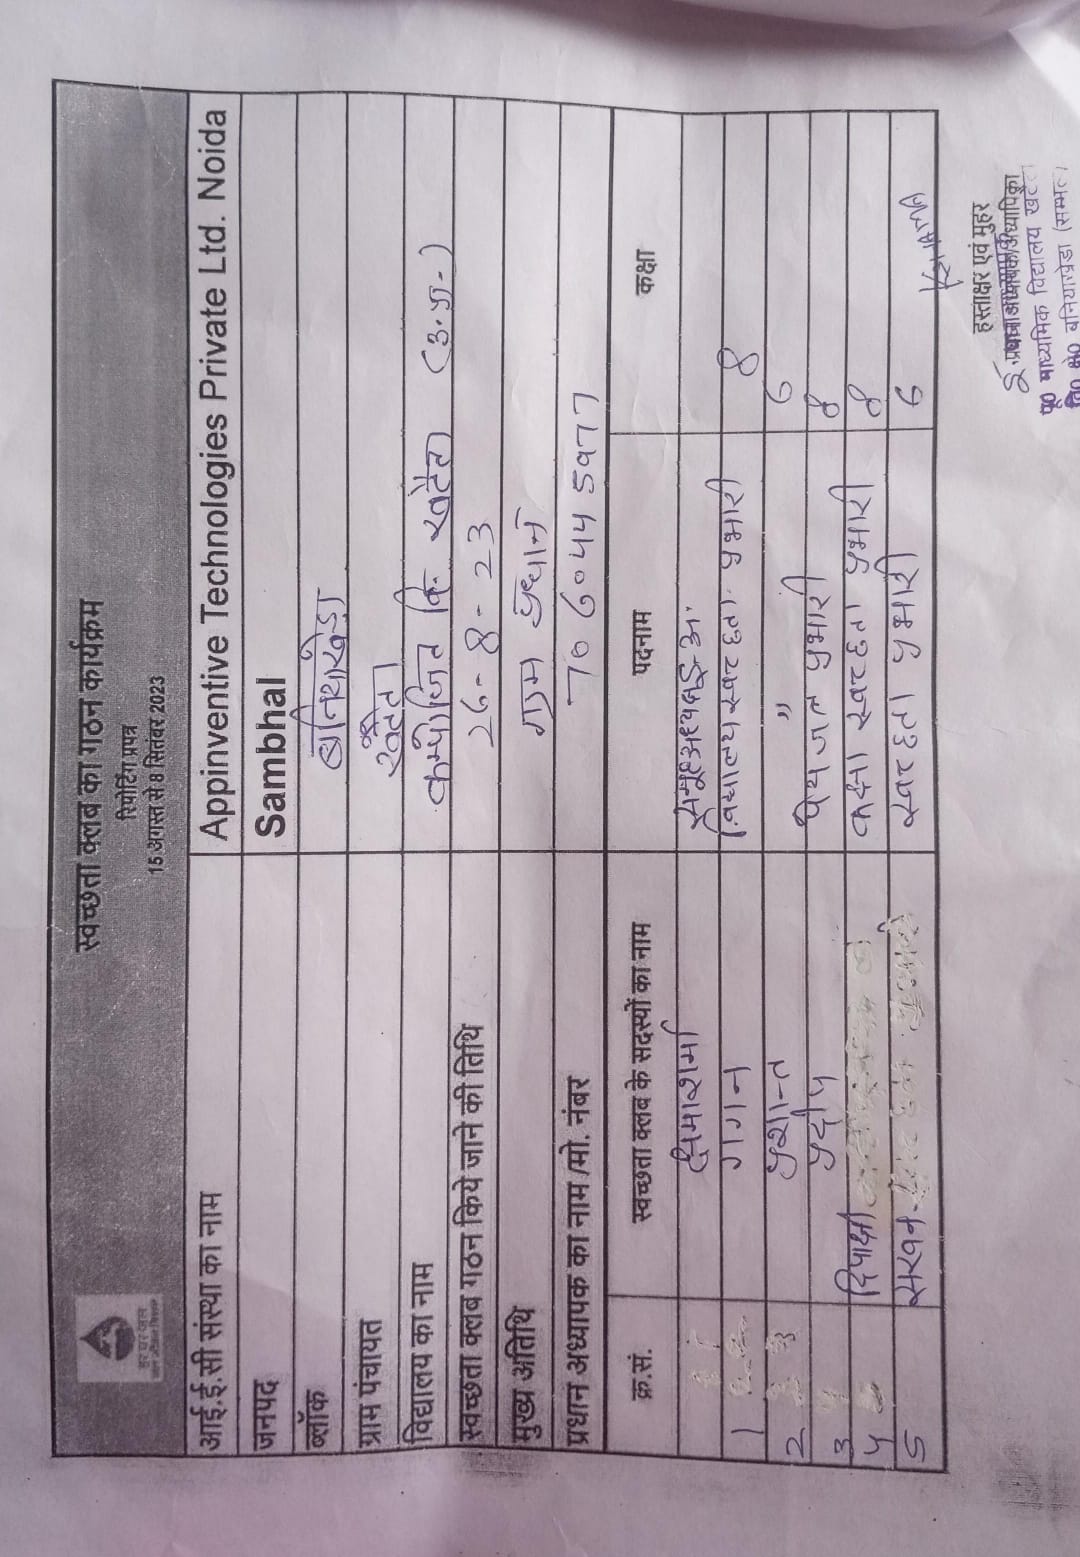 हर घर जल
जल जीवन मिशन
स्वच्छता क्लब का गठन कार्यक्रम
रिपोर्टिंग प्रपत्र
15 अगस्त से 8 सितंबर 2023
आई.ई.सी संस्था का नाम Appinventive Technologies Private Ltd. Noida
जनपद Sambhal
ब्लॉक बनियाखेड़ा
ग्राम पंचायत खेतैता
विद्यालय का नाम कम्पोजित वि. खेतैता (उ.प्रा.)
स्वच्छता क्लब गठन किये जाने की तिथि 26-8-23
मुख्य अतिथि ग्राम प्रधान
प्रधान अध्यापक का नाम /मो. नंबर 7060445977
क्र.सं. स्वच्छता क्लब के सदस्यों का नाम पदनाम कक्षा
क्षमा शर्मा
1 गगन विद्यालय स्वच्छता प्रभारी 8
2 प्रशान्त " 6
3 प्रदीप पेय जल प्रभारी 8
4 दिपाक्षी कक्षा स्वच्छता प्रभारी 8
5 स्वच्छता प्रभारी 6
हस्ताक्षर एवं मुहर
इं० प्रधानाध्यापक/अध्यापिका
पू० माध्यमिक विद्यालय
वि० क्षे० बनियाखेडा (सम्भल)